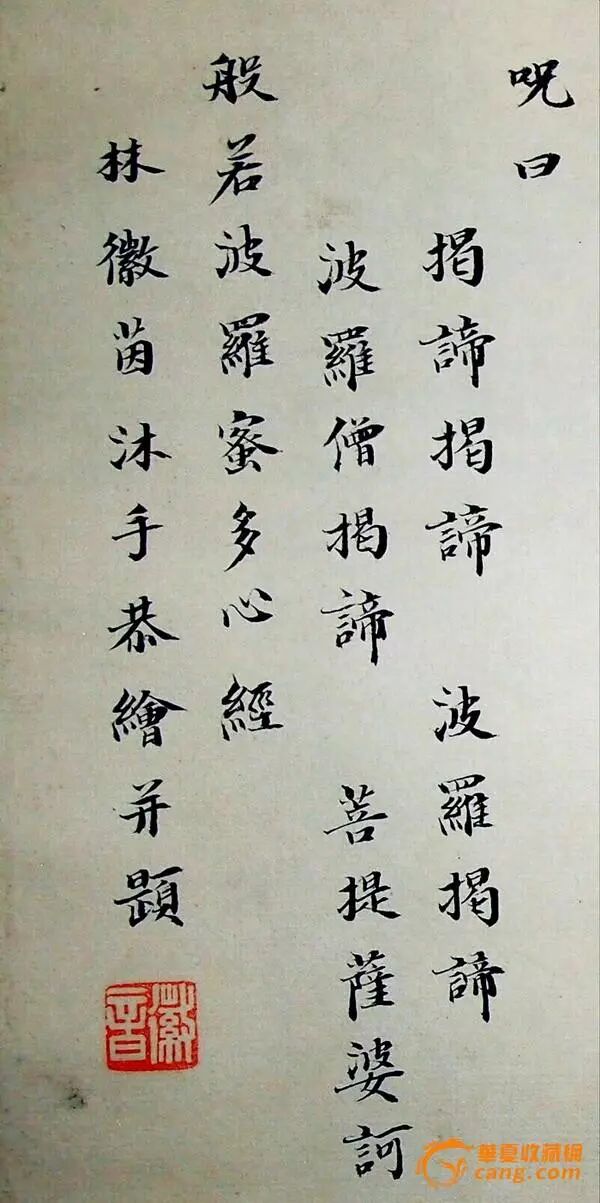 呪曰
揭諦揭諦 波羅揭諦
波羅僧揭諦 菩提薩婆訶
般若波羅蜜多心經
林徽茵沐手恭繪并題
徽音
華夏收藏網
cang.com